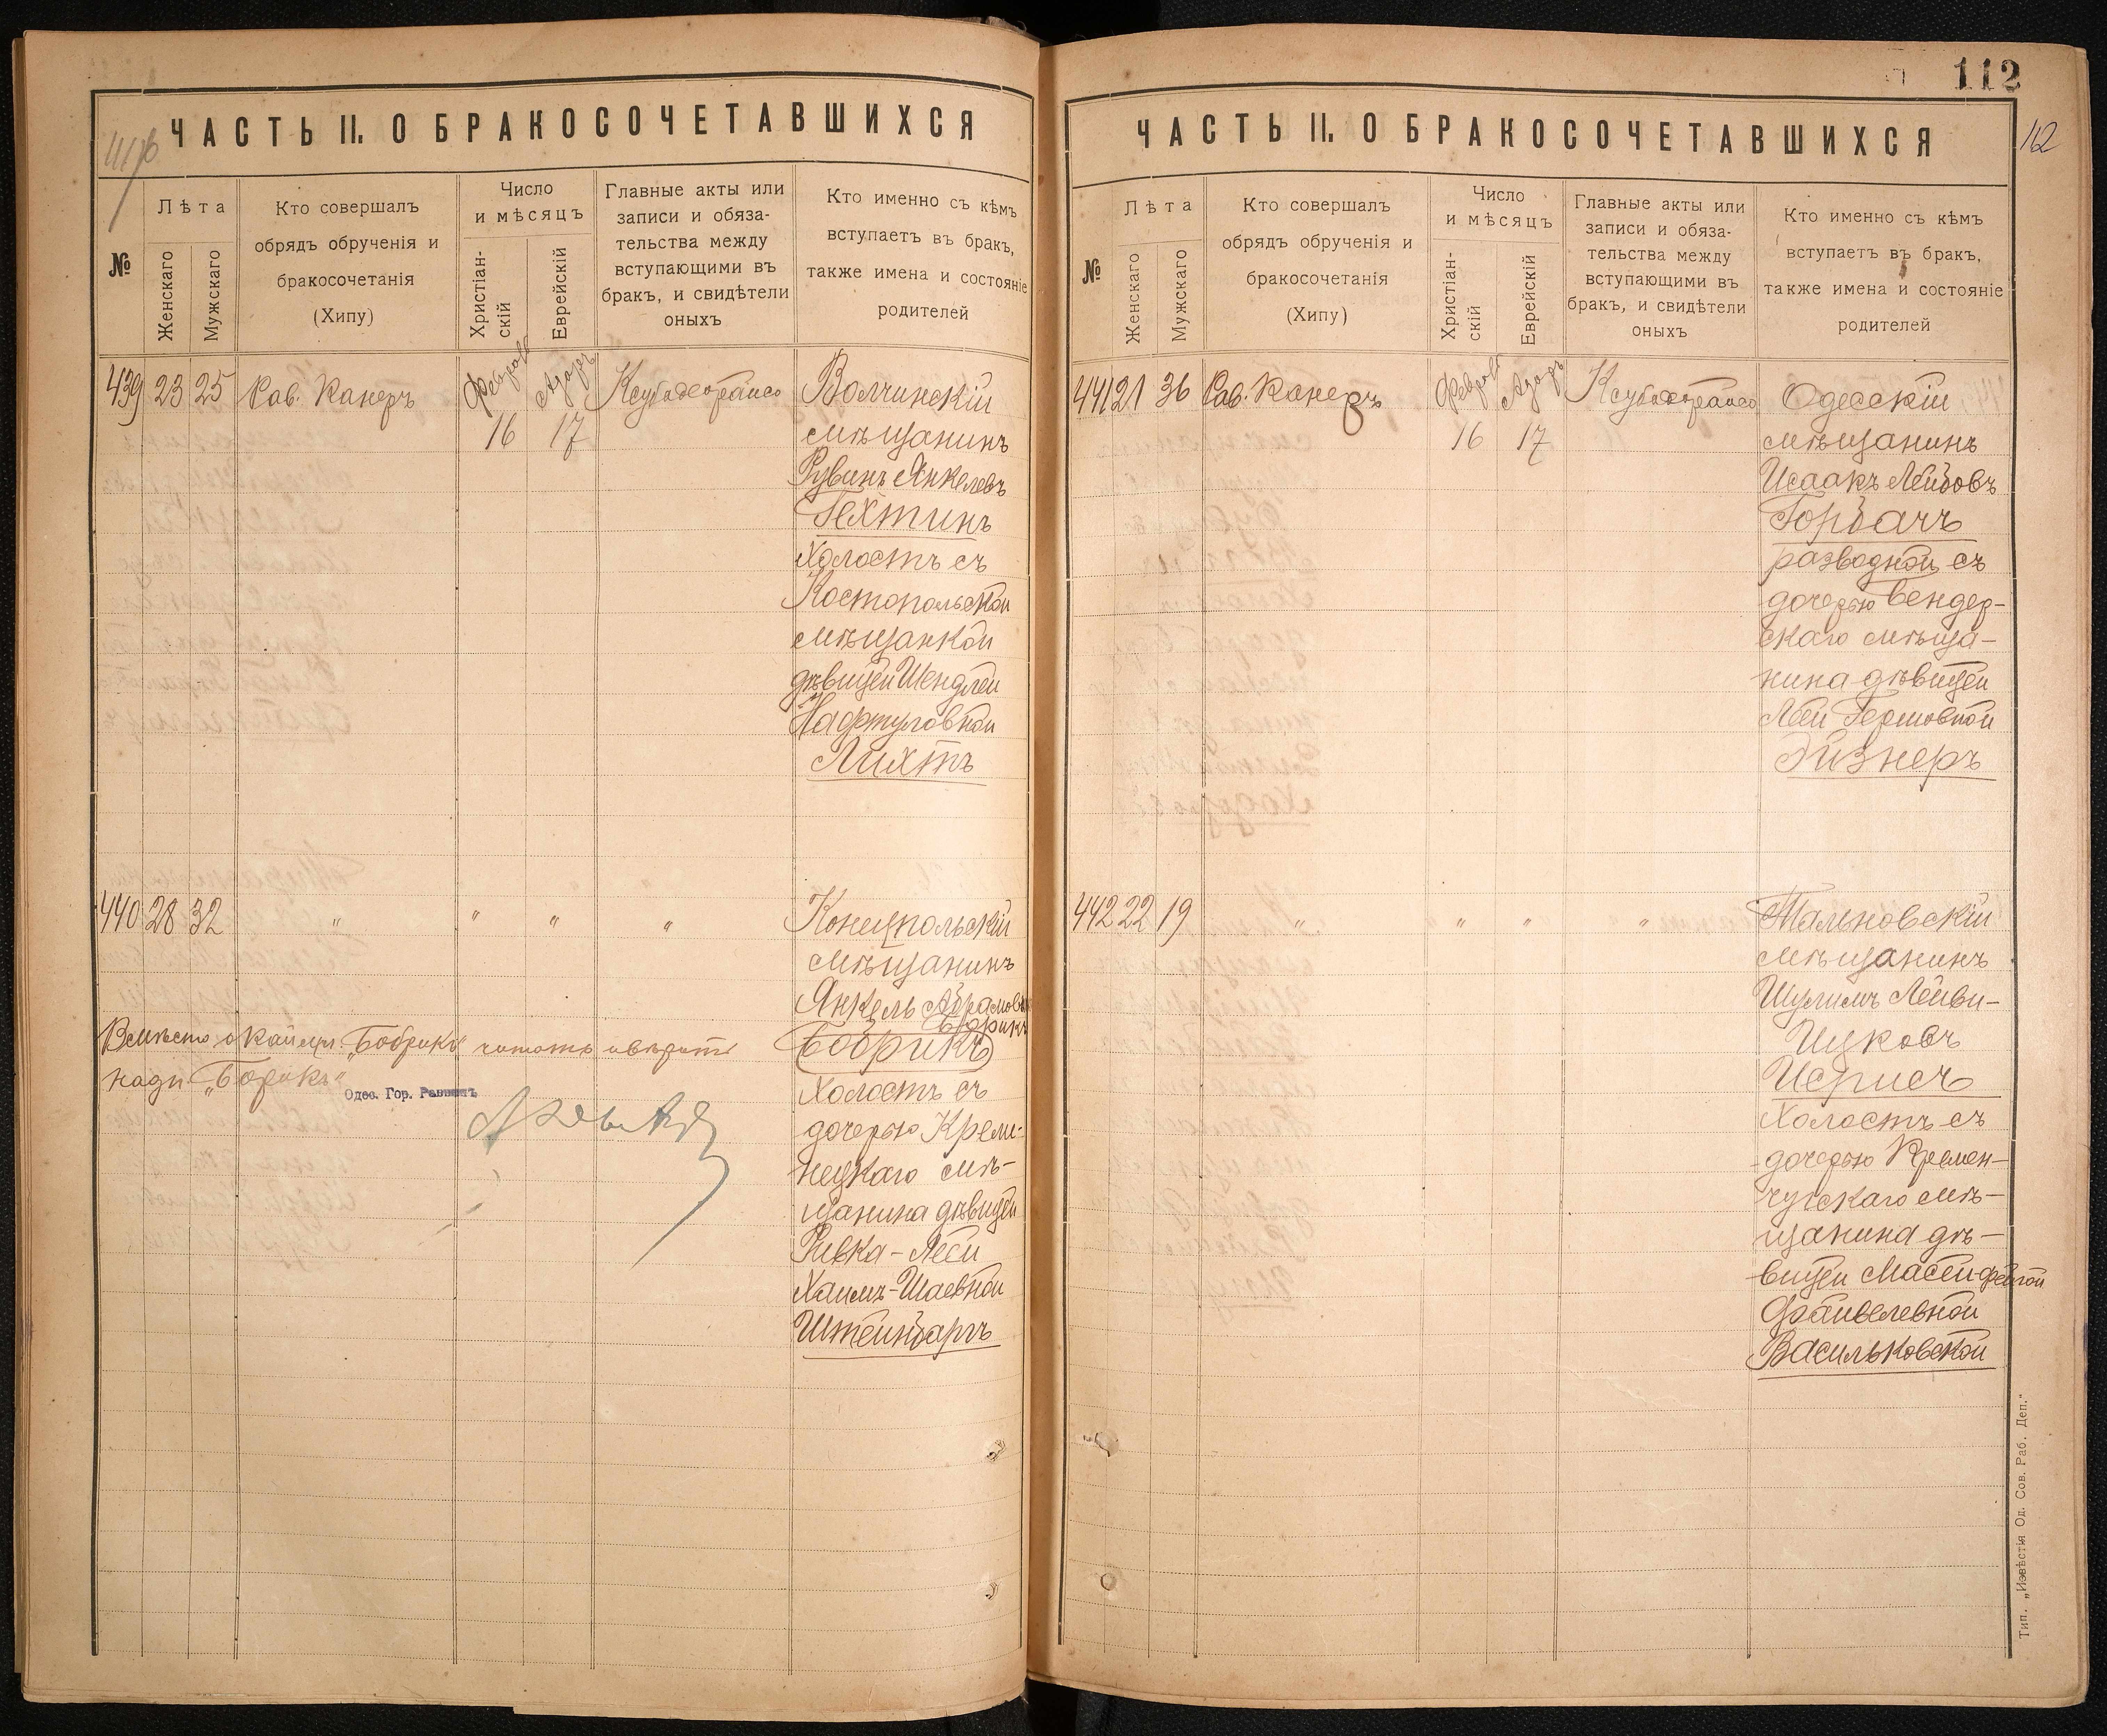 ЧАСТЬ II. О БРАКОСОЧЕТАВШИХСЯ
№
Лѣта
Женскаго
Мужскаго
Кто совершалъ
обрядъ обрученія и
бракосочетанія
(Хипу)
Число
и мѣсяцъ
Христіан-
скій
Еврейскій
Главные акты или
записи и обяза-
тельства между
вступающими въ
бракъ, и свидѣтели
оныхъ
Кто именно съ кѣмъ
вступаетъ въ бракъ,
также имена и состояніе
родителей
439 23 25 Рав. Канеръ
16 17
Волчинскій
мѣщанинъ
Рувинъ Янкелевъ
Гехтинъ
Холостъ съ
Костопольской
мѣщанкой
дѣвицей Шендлей
Нафтуловной
Лихтъ
440 28 32 " " " "
Конецпольскій
мѣщанинъ
Янкель Абрамовъ
Борикъ
Бобрикъ
Вмѣсто окаймл. „Бобрикъ" читать и вѣрить
надп. „Борикъ"
Одес. Гор. Раввинъ
Холостъ съ
дочерью Креме-
нецкаго мѣ-
щанина дѣвицей
Ривка-Леей
Хаимъ-Шаевной
Штейнбаргъ
112
112
ЧАСТЬ II. О БРАКОСОЧЕТАВШИХСЯ
№
Лѣта
Женскаго
Мужскаго
Кто совершалъ
обрядъ обрученія и
бракосочетанія
(Хипу)
Число
и мѣсяцъ
Христіан-
скій
Еврейскій
Главные акты или
записи и обяза-
тельства между
вступающими въ
бракъ, и свидѣтели
оныхъ
Кто именно съ кѣмъ
вступаетъ въ бракъ,
также имена и состояніе
родителей
441 21 36 Рав. Канеръ
16 17
Одесскій
мѣщанинъ
Исаакъ Лейбовъ
Горбачъ
разводной съ
дочерью Бендер-
скаго мѣща-
нина дѣвицей
Леей Гершовной
Эйзнеръ
442 22 19 " " " "
Тальновскій
мѣщанинъ
Шулимъ Лейви-
Ицковъ
Исрисъ
Холостъ съ
дочерью Кремен-
чугскаго мѣ-
щанина дѣ-
вицей Масей-Фейгой
Файвелевной
Васильковской
Тип. „Извѣстія Од. Сов. Раб. Деп."